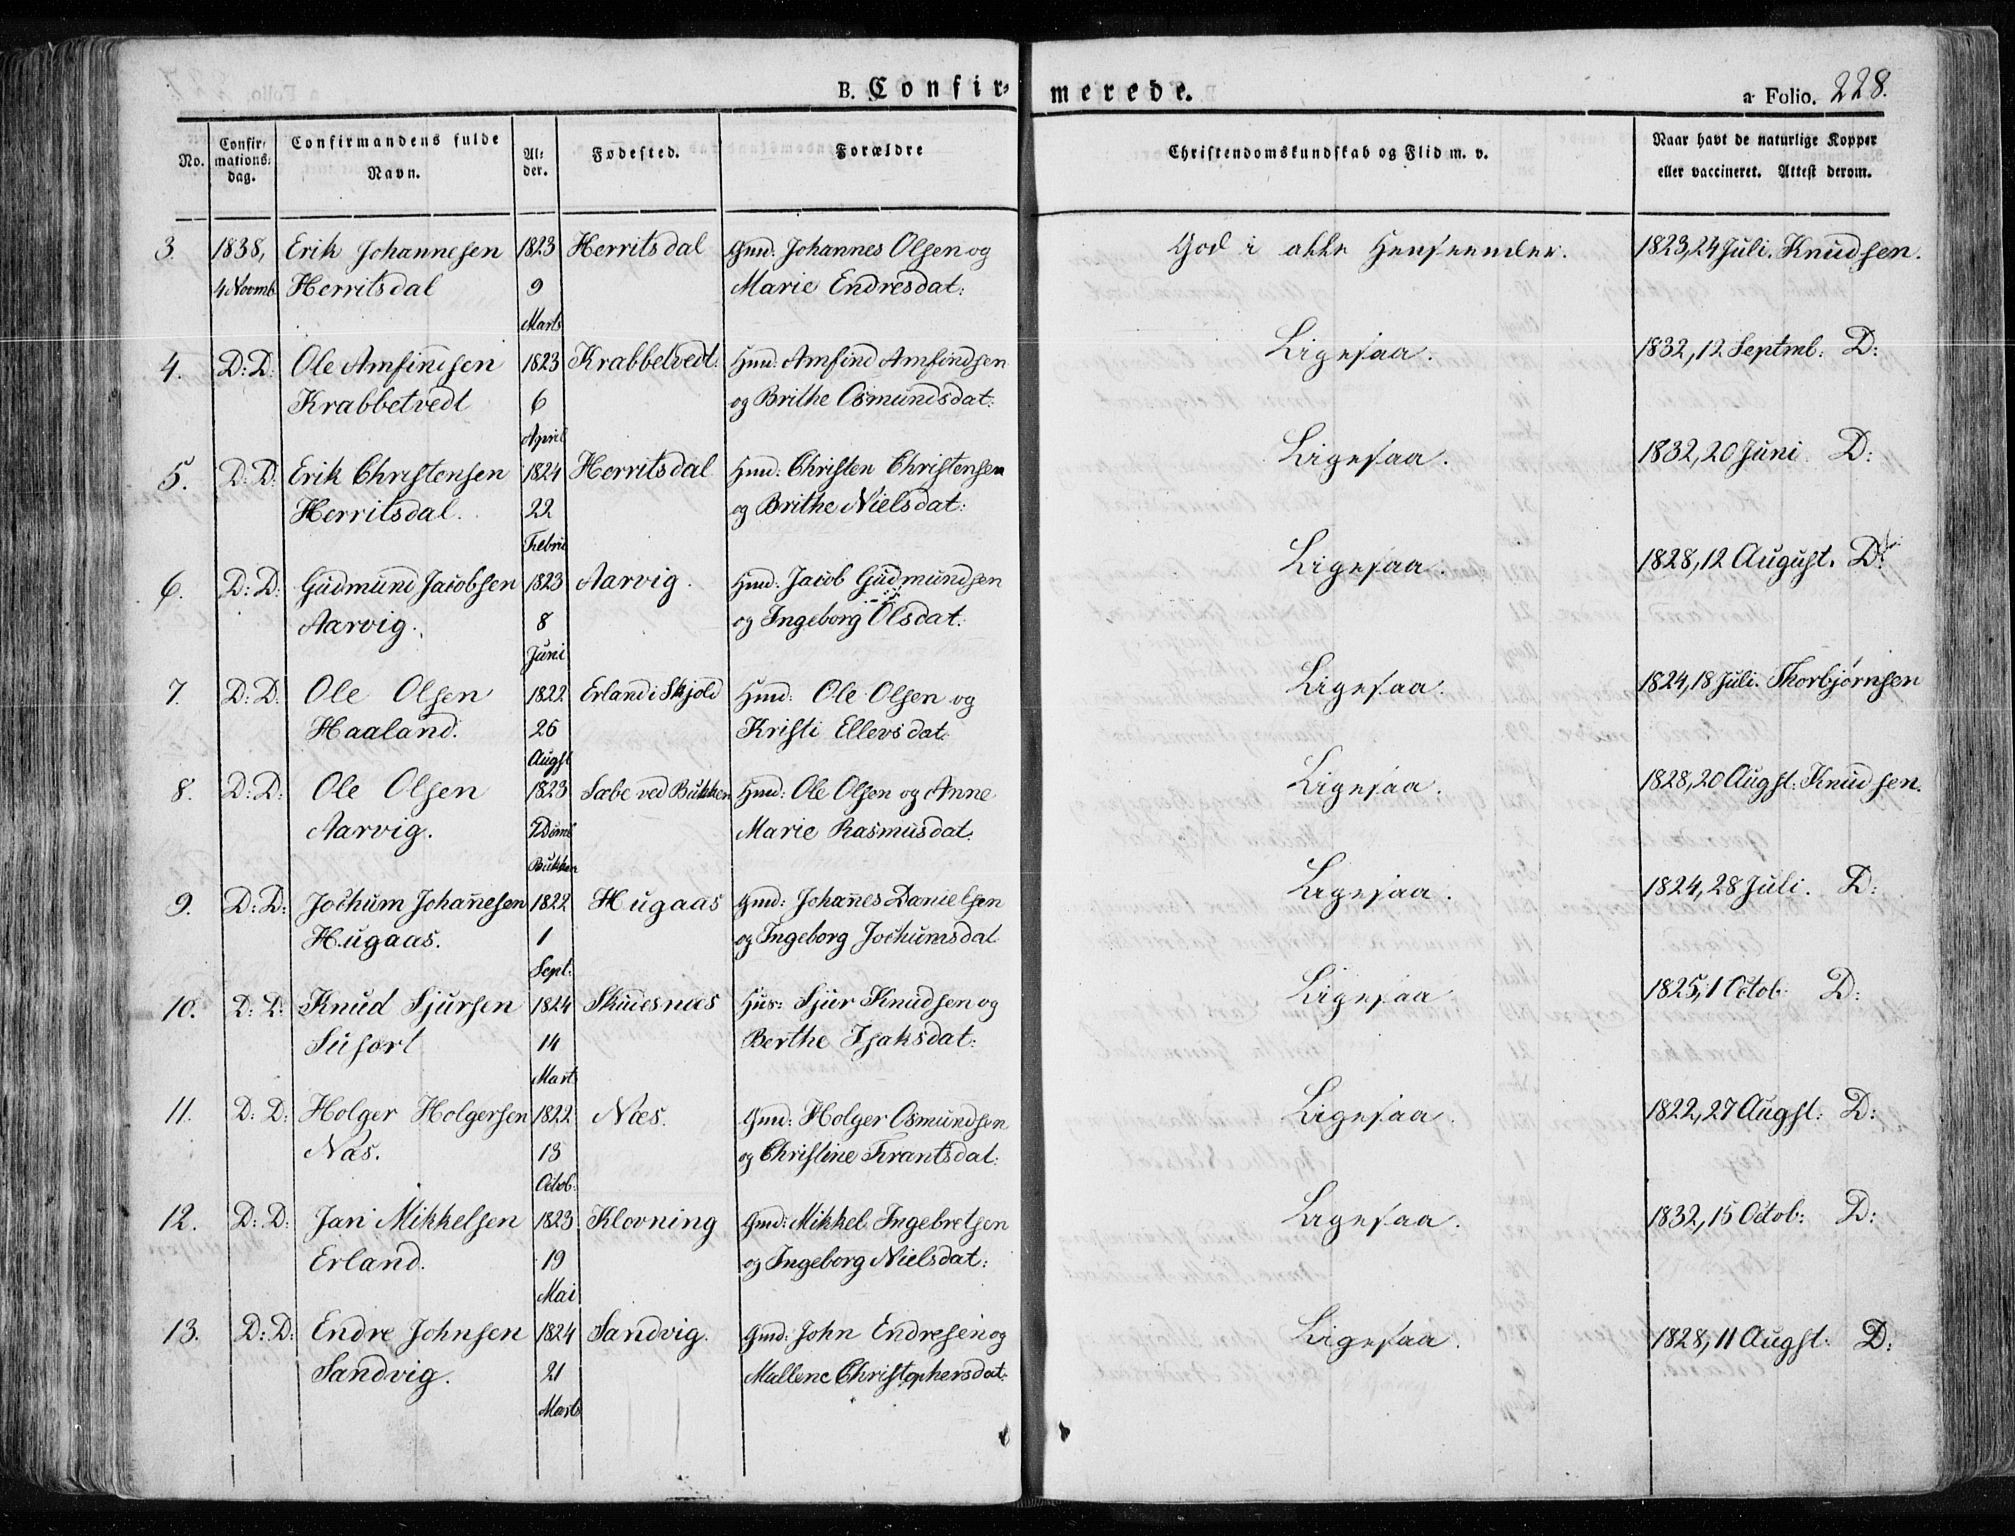 B. Confirmerede.
a Folio. 228.
No.
Confirmations-dag.
Confirmandens fulde Navn.
Alder.
Fødested.
Forældre
Christendomskundskab og Flid m. v.
Naar havt de naturlige Kopper eller vaccineret. Attest derom.
3. 1838, Erik Johannesen 1823 Herritsdal Gmd: Johannes Olsen og God i alle Henseender. 1823, 24 Juli. Knudsen.
4 Novmb. Herritsdal 9 Marie Endresdat:
Marts
4. D: D: Ole Amfindsen 1823 Krabbetvedt. Hmd: Amfind Amfindsen Ligesaa. 1832, 12 Septmb: D:
Krabbetvedt 6 og Brithe Osmundsdat:
April
5. D: D: Erik Christensen 1824 Herritsdal Hmd: Christen Christensen Ligesaa. 1832, 20 Juni D:
Herritsdal. 22 og Brithe Nielsdat:
Febru
6. D: D: Gudmund Jacobsen 1823 Aarvig. Hmd: Jacob Gudmundsen Ligesaa. 1828, 12 August. D:
Aarvig. 8 og Ingeborg Olsdat:
Juni
7. D: D: Ole Olsen 1822 Erland i Skjold Hmd: Ole Olsen og Ligesaa. 1824, 18 Juli. Thorbjørnsen
Haaland. 26 Kristi Ellevsdat:
Augst
8. D: D: Ole Olsen 1823 Sæbe ved Bukken Hmd: Ole Olsen og Anne Ligesaa. 1828, 20 Augst: Knudsen.
Aarvig. 7 Dømt Marie Rasmusdat:
Bukken
9. D: D: Jochum Johan̄esen 1822 Hugaas Gmd: Johan̄es Danielsen Ligesaa. 1824, 28 Juli. D:
Hugaas. 1 og Ingeborg Jochumsdat
Sept:
10. D: D: Knud Sjursen 1824 Skudesnæs Hus: Sjur Knudsen og Ligesaa 1825, 1 Octob: D:
14 Berthe Isaksdat:
Marts
11. D: D: Holger Holgersen 1822 Næs. Gmd: Holger Osmundsen Ligesaa. 1822, 27 Augst: D:
Næs. 13 og Christine Frantsdat:
Octob:
12. D: D: Jan Mikkelsen 1823 Klovning Gmd: Mikkel Ingebretsen Ligesaa. 1832, 15 Octob: D:
Erland. 19 og Ingeborg Nielsdat:
Mai
13. D: D: Endre Johnsen 1824 Sandvig. Gmd: John Endresen og Ligesaa. 1828, 11 Augst: D:
Sandvig. 21 Mallene Christophersdat:
Marts